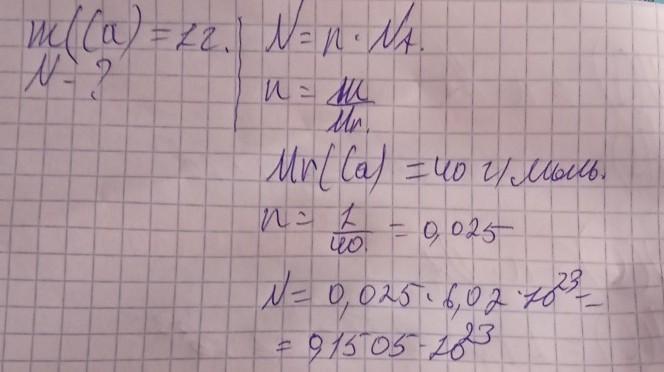 m(Ca) = 1г.
N - ?
N = n · NA.
n = m/Mr.
Mr(Ca) = 40 г/моль.
n = 1/40. = 0,025
N = 0,025 · 6,02 · 10²³ =
= 0,1505 · 10²³